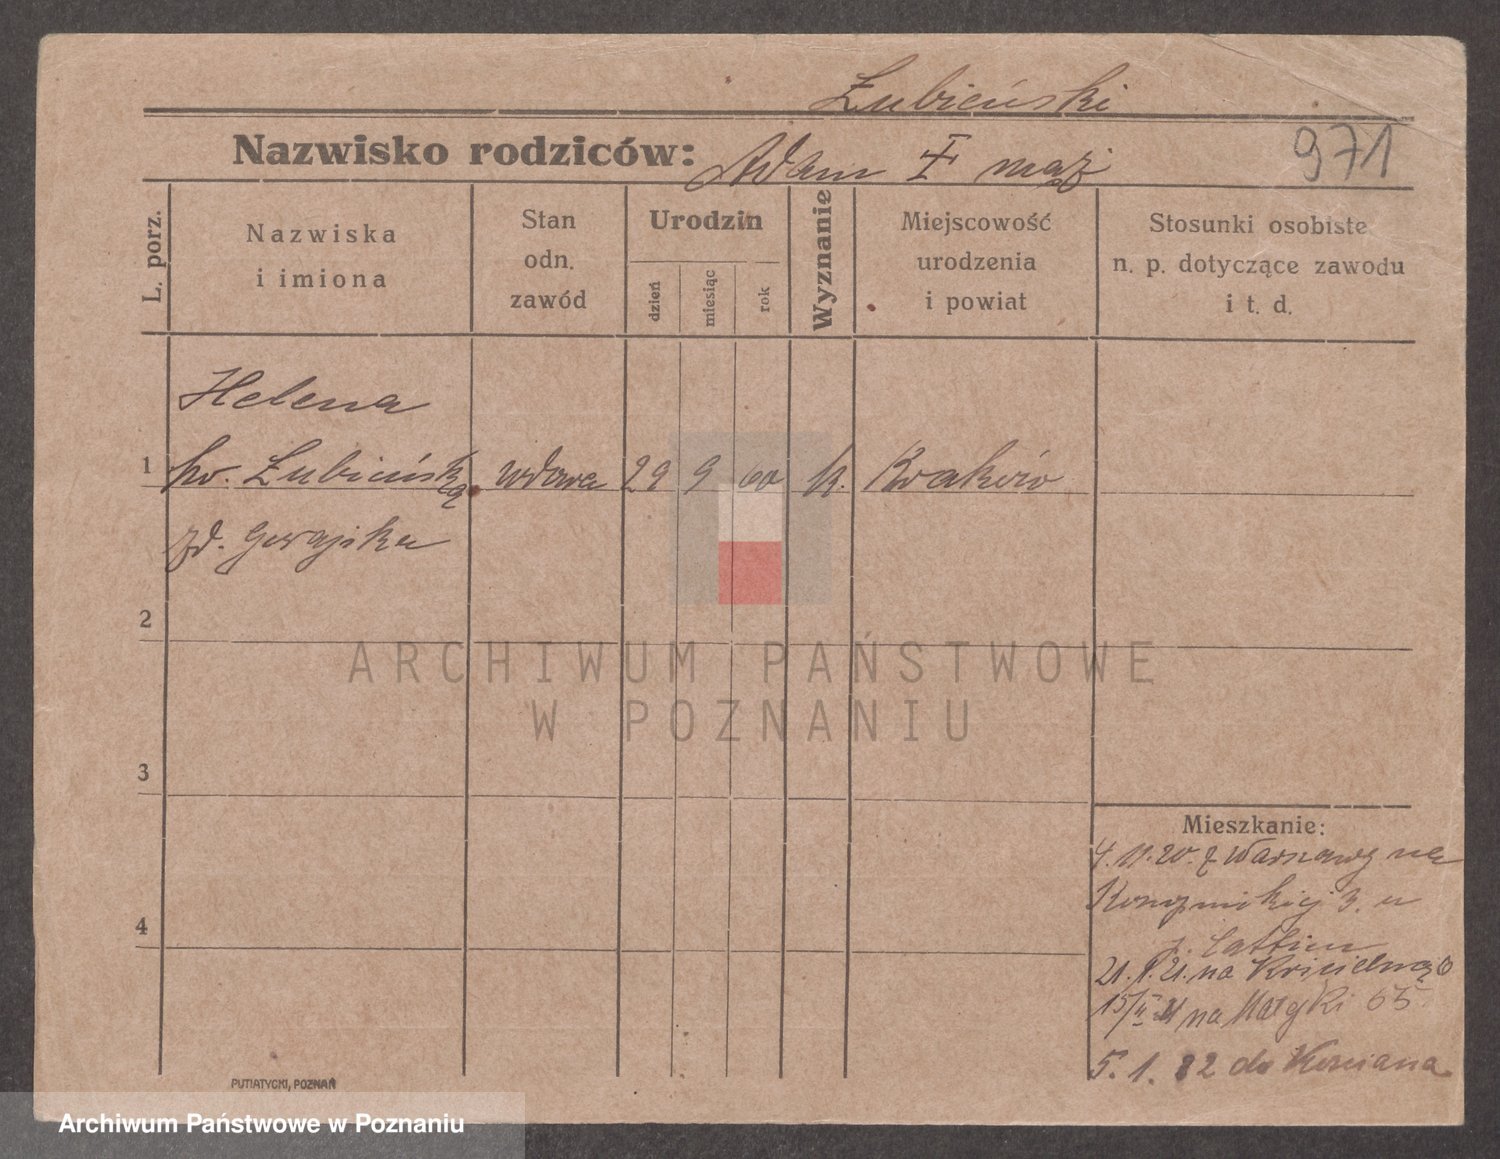 Łubieński
Nazwisko rodziców: Adam I mąż
971
L. porz.
Nazwiska
i imiona
Stan
odn.
zawód
Urodzin
dzień
miesiąc
rok
Wyznanie
Miejscowość
urodzenia
i powiat
Stosunki osobiste
n. p. dotyczące zawodu
i t. d.
Helena
1 hr. Łubieńska wdowa 29 9 60 k. Kraków
zd.
2
3
4
ARCHIWUM PAŃSTWOWE
W POZNANIU
Mieszkanie:
4.11.20. z Warszawy na
3. u
21. 1. 21. na
na 65
5. 1. 22 do Kościana
PUTIATYCKI, POZNAŃ
Archiwum Państwowe w Poznaniu